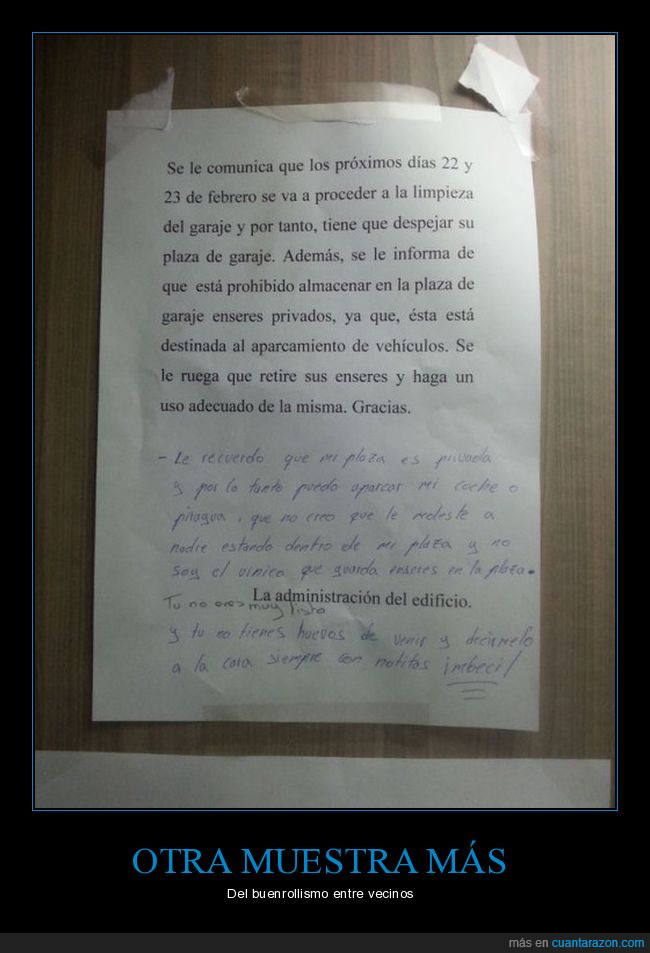 Se le comunica que los próximos días 22 y
23 de febrero se va a proceder a la limpieza
del garaje y por tanto, tiene que despejar su
plaza de garaje. Además, se le informa de
que está prohibido almacenar en la plaza de
garaje enseres privados, ya que, ésta está
destinada al aparcamiento de vehículos. Se
le ruega que retire sus enseres y haga un
uso adecuado de la misma. Gracias.
- Le recuerdo que mi plaza es privada
y por lo tanto puedo aparcar mi coche o
piragua, que no creo que le moleste a
nadie estando dentro de mi plaza y no
soy el único que guarda enseres en la plaza.
La administración del edificio.
Tu no eres muy listo
y tu no tienes huevos de venir y decirmelo
a la cara siempre con notitas imbecil
OTRA MUESTRA MÁS
Del buenrollismo entre vecinos
más en cuantarazon.com